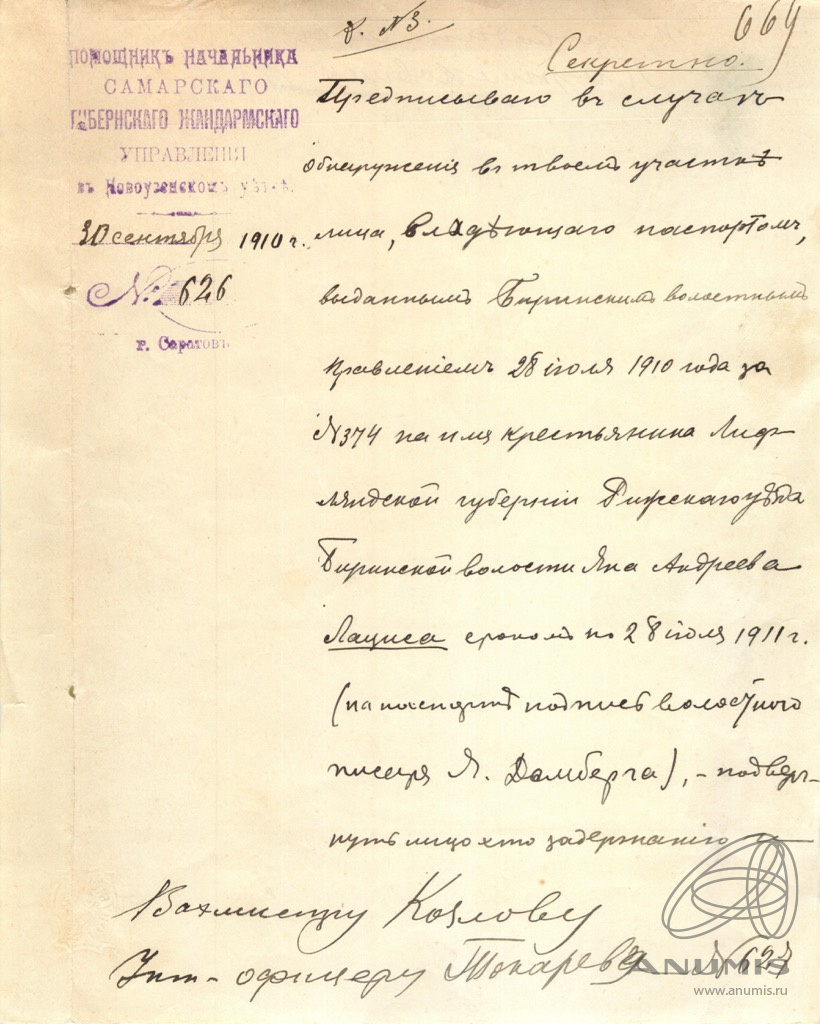 к. №3.
664
Секретно.
ПОМОЩНИКЪ НАЧАЛЬНИКА
САМАРСКАГО
ГУБЕРНСКАГО ЖАНДАРМСКАГО
УПРАВЛЕНІЯ
въ Новоузенскомъ уѣз.
30 сентября 1910 г.
№ 626
г. Саратовъ
Предписываю въ случаѣ
обнаруженія въ твоемъ участкѣ
лица, владѣющаго паспортомъ,
выданнымъ Биринскимъ волостнымъ
правленіемъ 28 іюля 1910 года за
№374 на имя крестьянина Лиф
ляндской губерніи Рижскаго уѣзда
Биринской волости Яна Андреева
Лациса срокомъ по 28 іюля 1911 г.
(на паспортѣ подпись волостного
писаря Я. Домберга), - подверг-
нуть лицо это задержанію и
Вахмистру Козлову
Унт-офицеру Токареву № 627
ANUMIS
www.anumis.ru